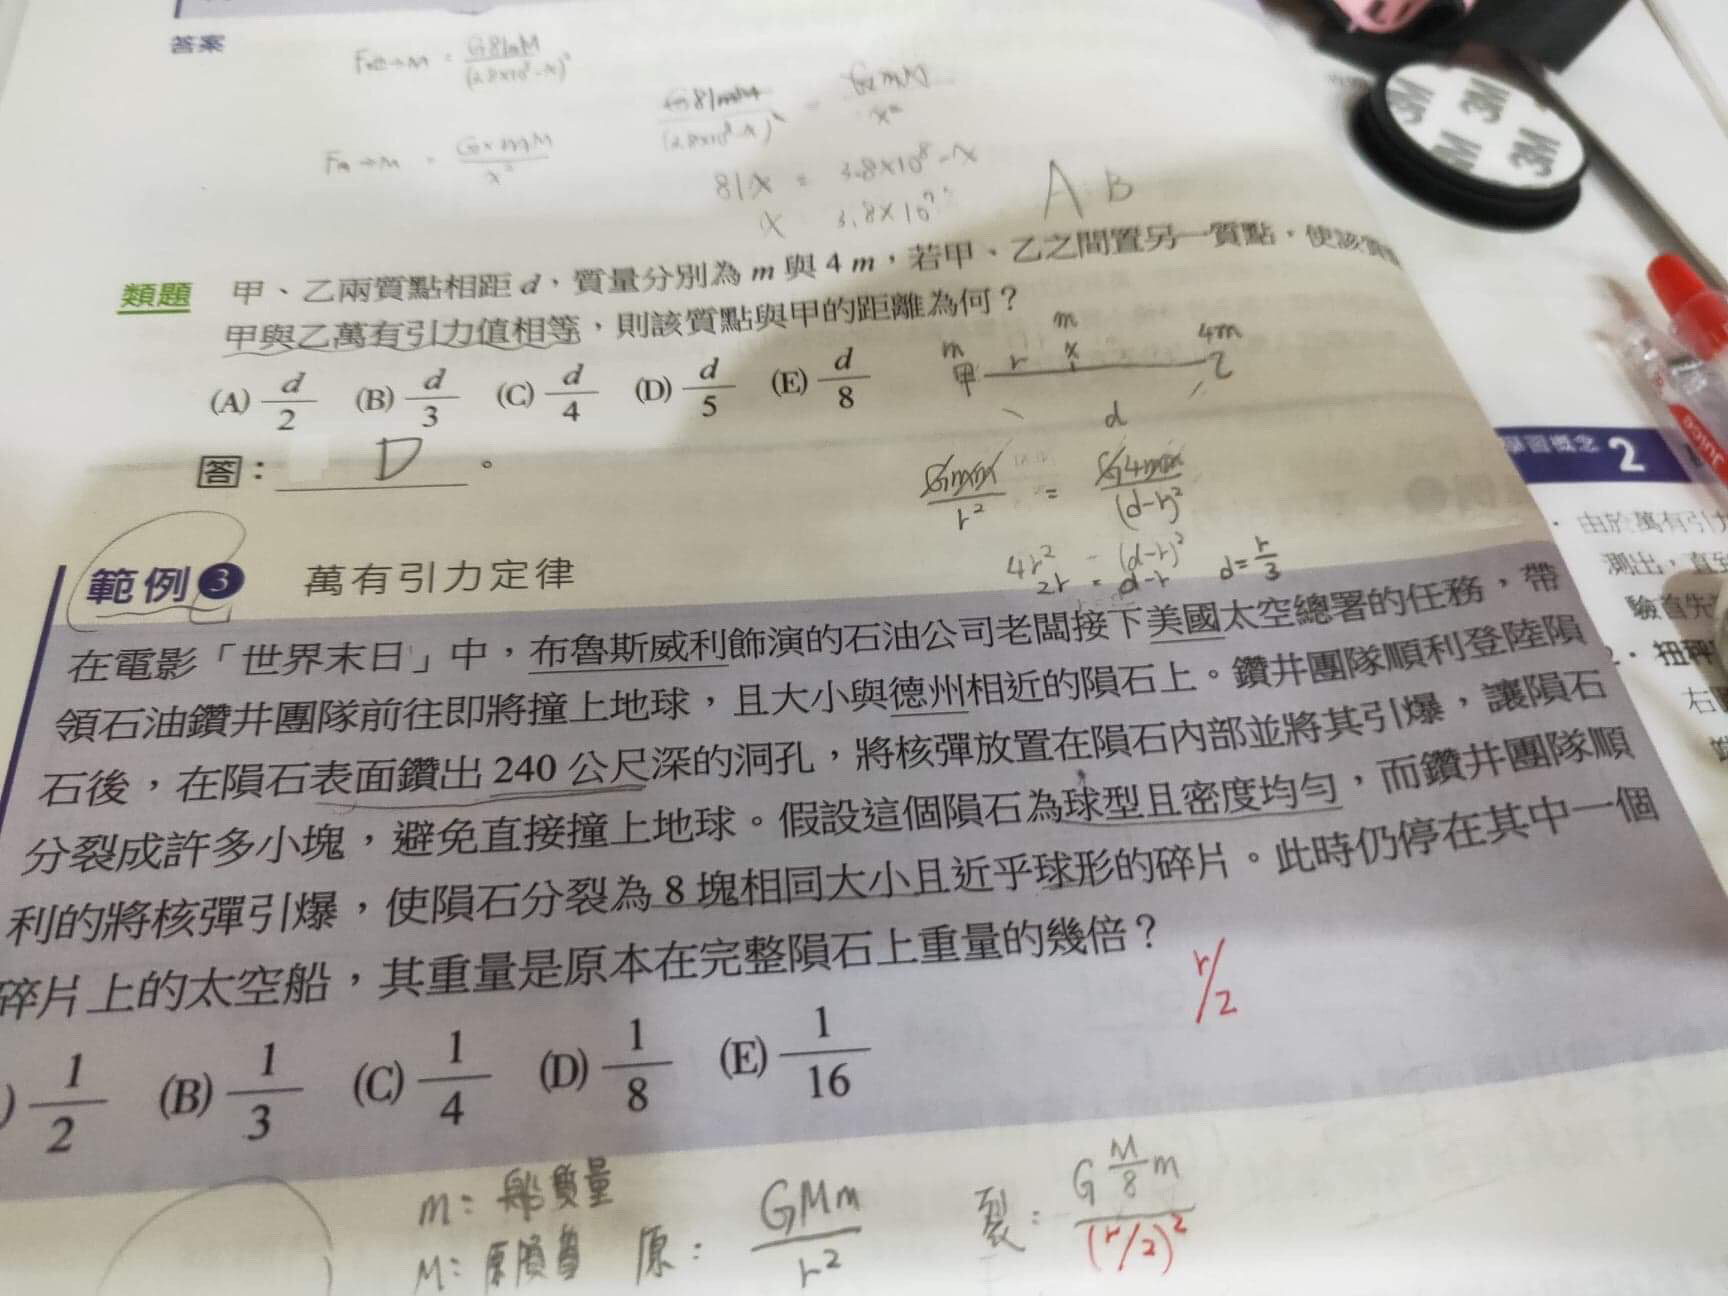 答案
G81mM
(3.8×10⁸-x)²
G×mM
x²
81x = 3.8×10⁸-x
x 3.8×10⁷
A B
3M 3M 3M 3M
類題 甲、乙兩質點相距 d，質量分別為 m 與 4 m，若甲、乙之間置另一質點，使該質
甲與乙萬有引力值相等，則該質點與甲的距離為何？
(A) d/2 (B) d/3 (C) d/4 (D) d/5 (E) d/8
m r m x 4m
甲 乙
d
答： D 。
Gmm/r² = G4mm/(d-r)²
4r² = (d-r)²
2r = d-r d=r/3
學習概念 2
由於萬有引力
測出，直到
驗首先
扭秤
右
範例 3 萬有引力定律
在電影「世界末日」中，布魯斯威利飾演的石油公司老闆接下美國太空總署的任務，帶
領石油鑽井團隊前往即將撞上地球，且大小與德州相近的隕石上。鑽井團隊順利登陸隕
石後，在隕石表面鑽出 240 公尺深的洞孔，將核彈放置在隕石內部並將其引爆，讓隕石
分裂成許多小塊，避免直接撞上地球。假設這個隕石為球型且密度均勻，而鑽井團隊順
利的將核彈引爆，使隕石分裂為 8 塊相同大小且近乎球形的碎片。此時仍停在其中一個
碎片上的太空船，其重量是原本在完整隕石上重量的幾倍？
r/2
) 1/2 (B) 1/3 (C) 1/4 (D) 1/8 (E) 1/16
m：船質量
M：原隕質 原：GMm/r² 裂：G M/8 m/(r/2)²